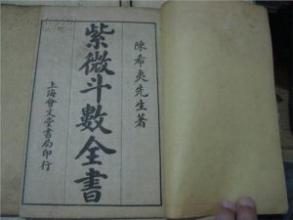 陳希夷先生著
紫微斗數全書
上海會文堂書局印行